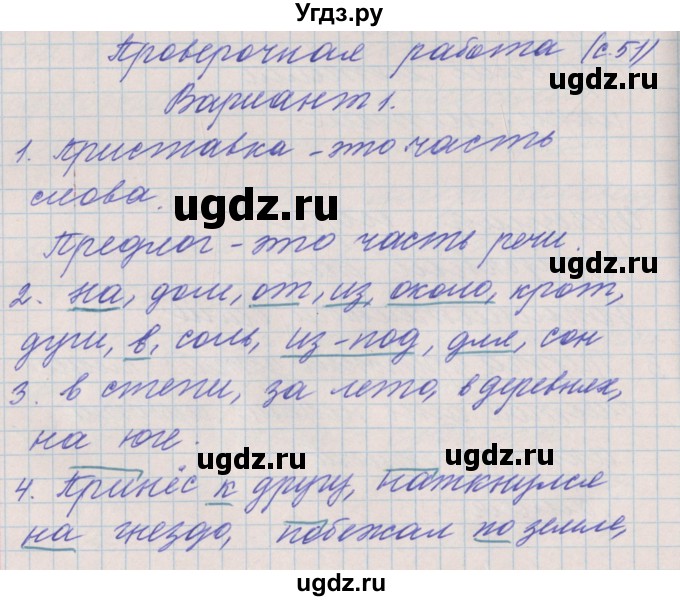 Угдз.ру
Проверочная работа (с.51)
ugdz.ru
Вариант 1.
1. Приставка - это часть
слова.
ugdz.ru
Предлог - это часть речи.
ugdz.ru
2. на, дом, от, из, около, крот,
дуги, в, соль, из-под, для, сон
3. в степи, за лето, в деревнях,
на юге.
ugdz.ru ugdz.ru
4. Принёс к другу, наткнулся
на гнездо, побежал по земле,
ugdz.ru